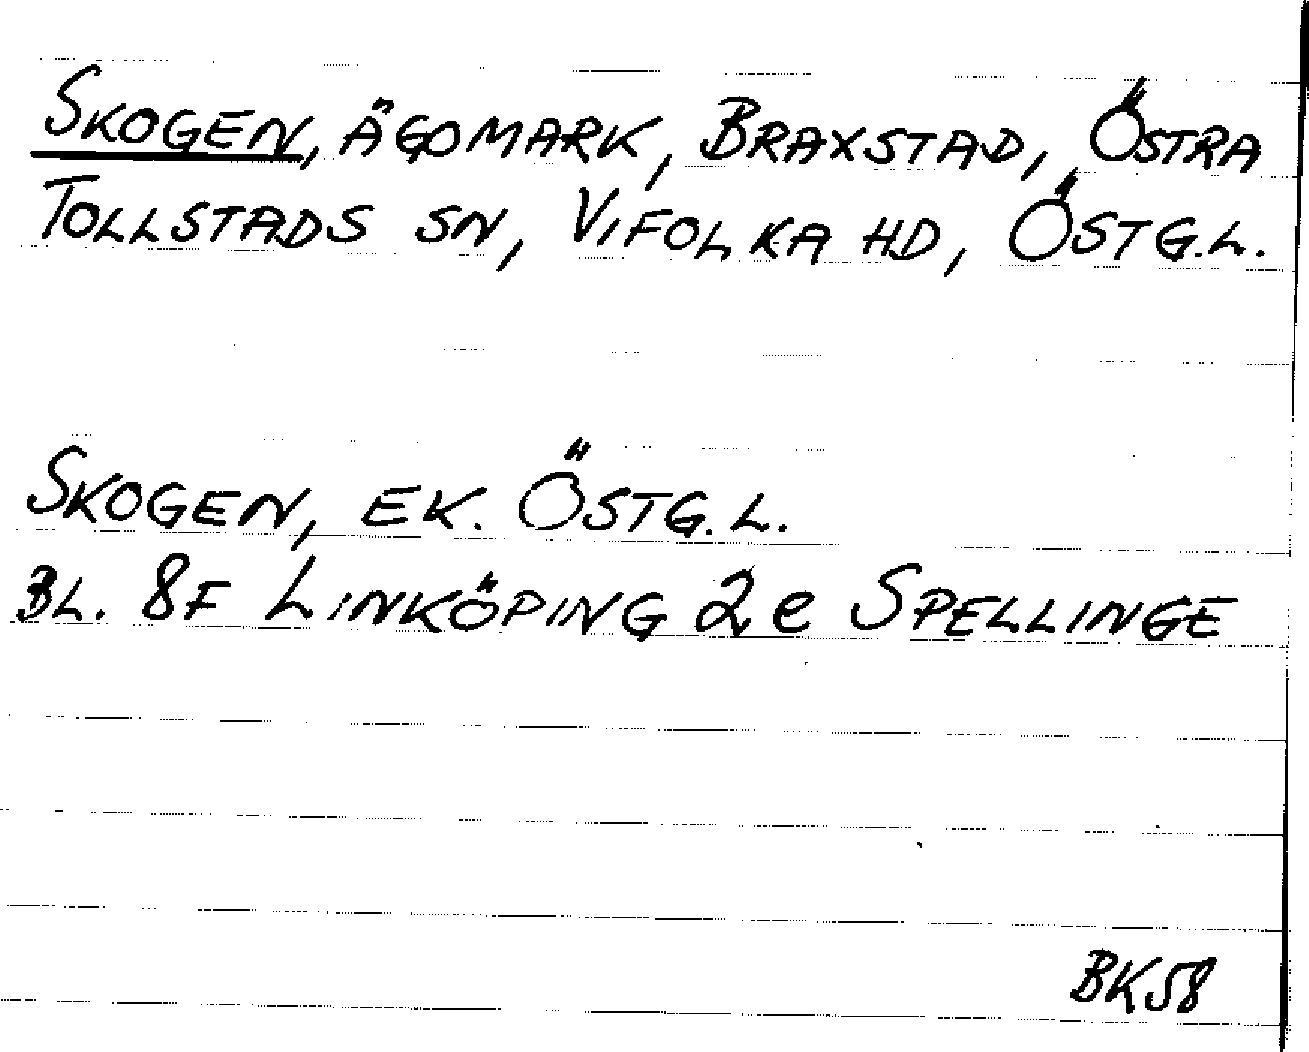 SKOGEN, ÄGOMARK, BRAXSTAD, ÖSTRA
TOLLSTADS SN, VIFOLKA HD, ÖSTG.L.
SKOGEN, EK. ÖSTG.L.
BL. 8F LINKÖPING 2e SPELLINGE
BK58